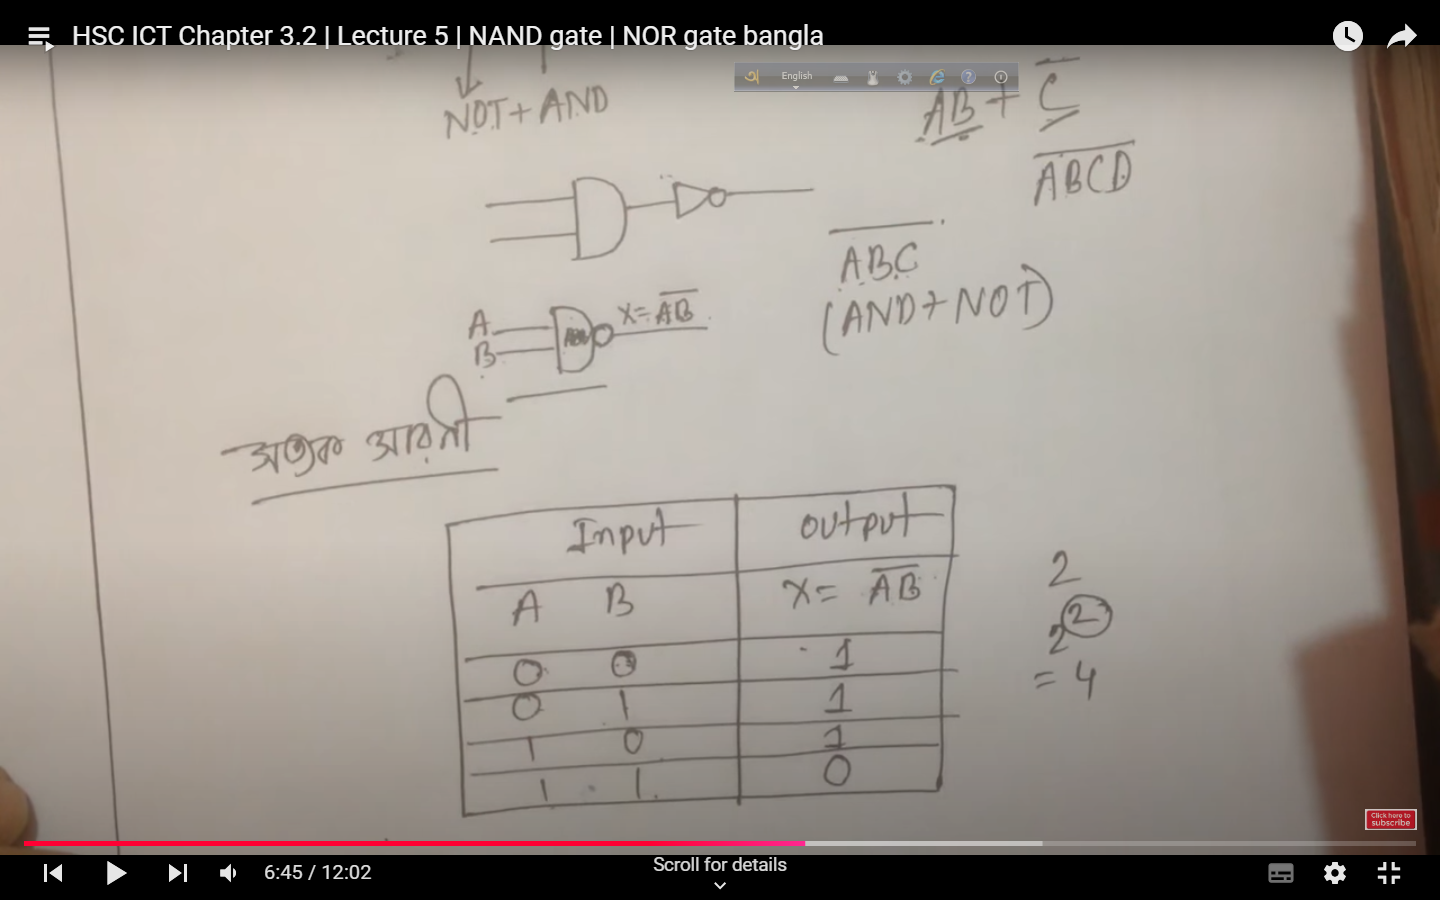 HSC ICT Chapter 3.2 | Lecture 5 | NAND gate | NOR gate bangla
অ English
NOT + AND
AB + C̅
A̅B̅C̅D̅
A̅B̅C̅
(AND + NOT)
A
B
X = A̅B̅
সত্যক সারণী
Input Output
A B X = A̅B̅
0 0 1
0 1 1
1 0 1
1 1 0
2
2²
= 4
Click here to
subscribe
6:45 / 12:02
Scroll for details